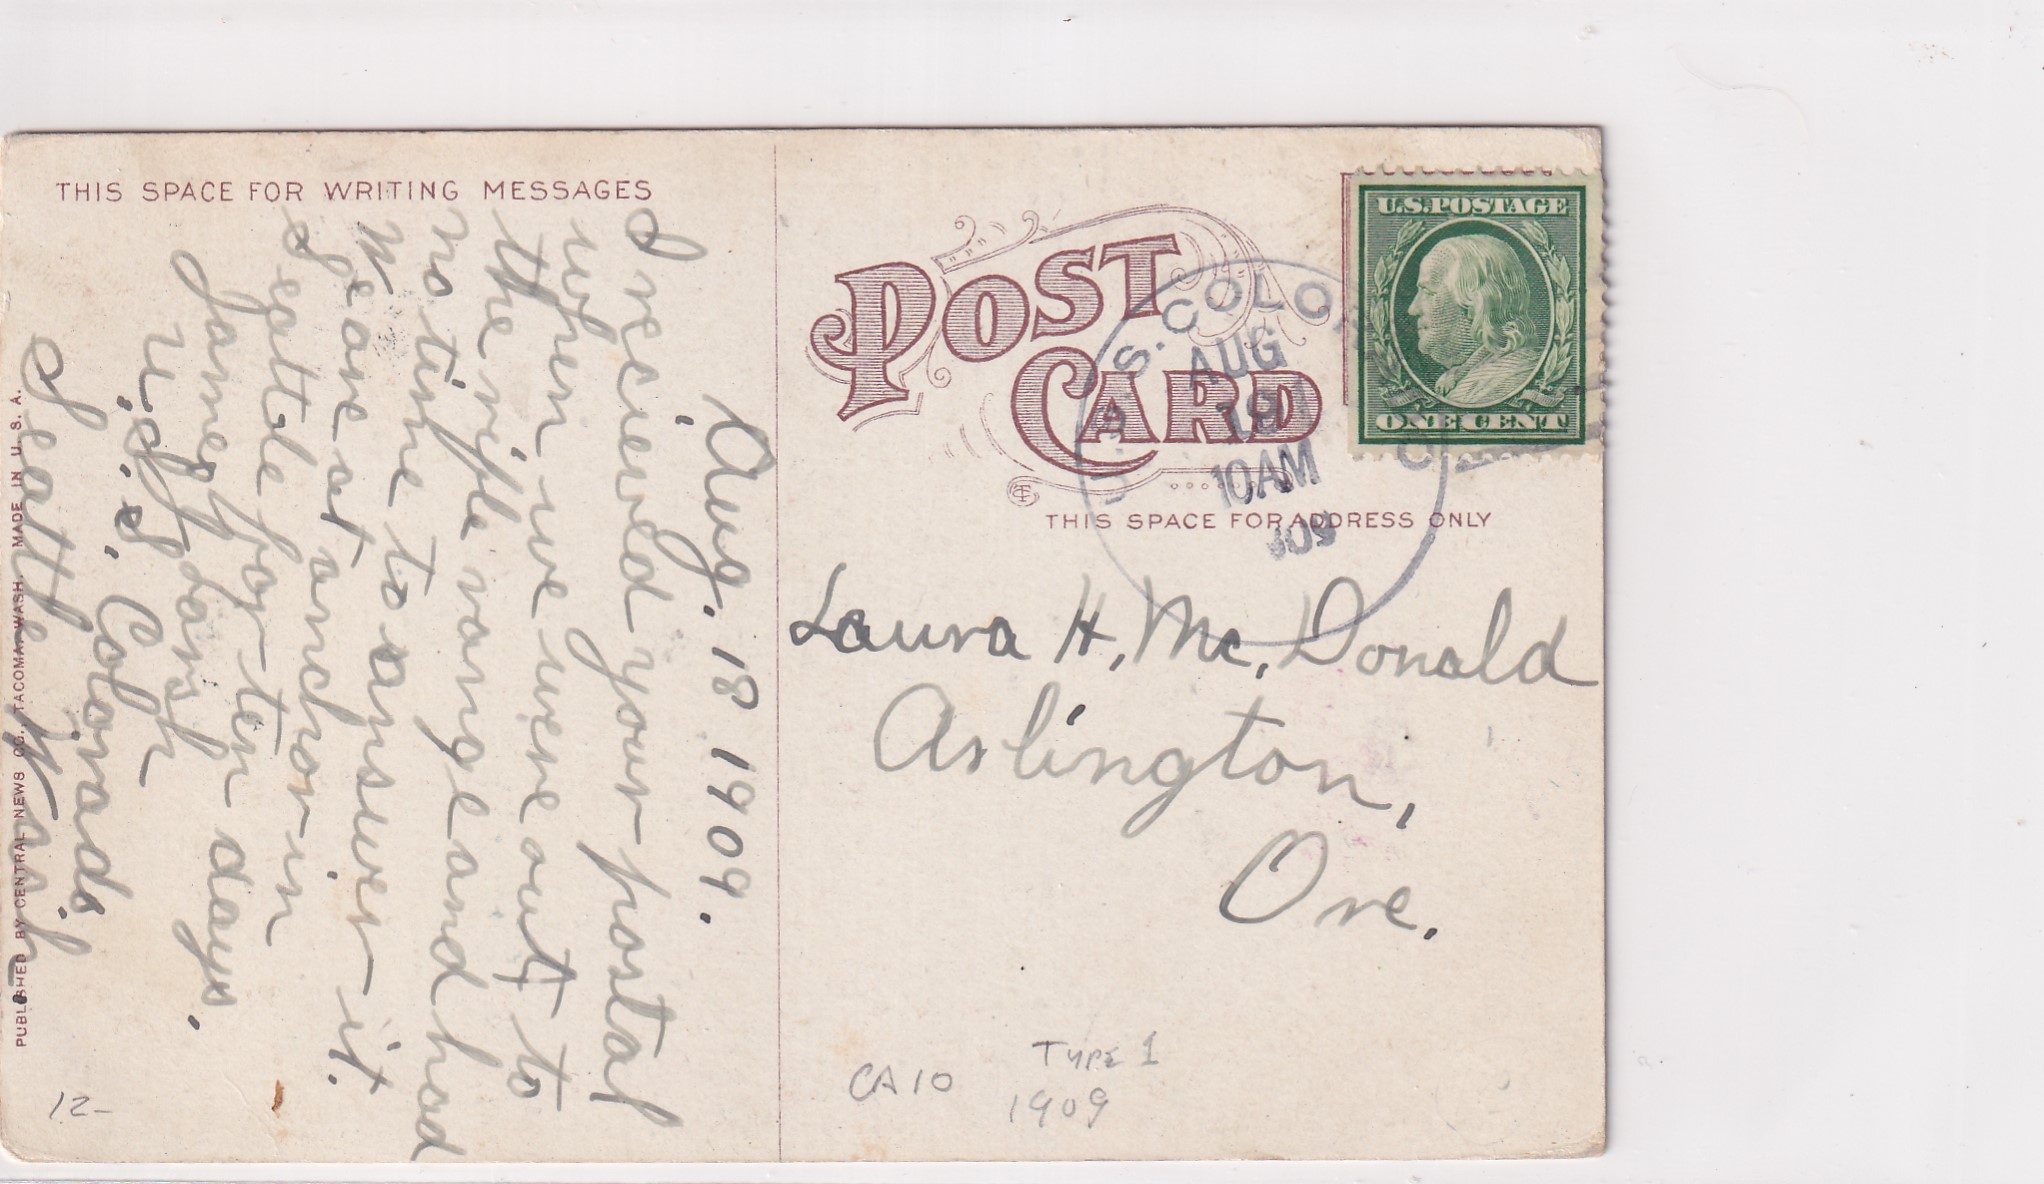 THIS SPACE FOR WRITING MESSAGES
Aug. 18 1909.
I recieved your postal
when we were out to
the rifle range and had
no time to answer it.
We are at anchor in
Seattle for ten days.
James J. 
U.S.S. Colorado
Seattle Wash
PUBLISHED BY CENTRAL NEWS CO., TACOMA, WASH. MADE IN U. S. A.
12-
POST
CARD
THIS SPACE FOR ADDRESS ONLY
U.S.POSTAGE
ONE CENT
U. S. S. COLORADO
AUG
18
10AM
109
Laura H. Mc. Donald
Arlington,
Ore.
CA 10
TYPE 1
1909